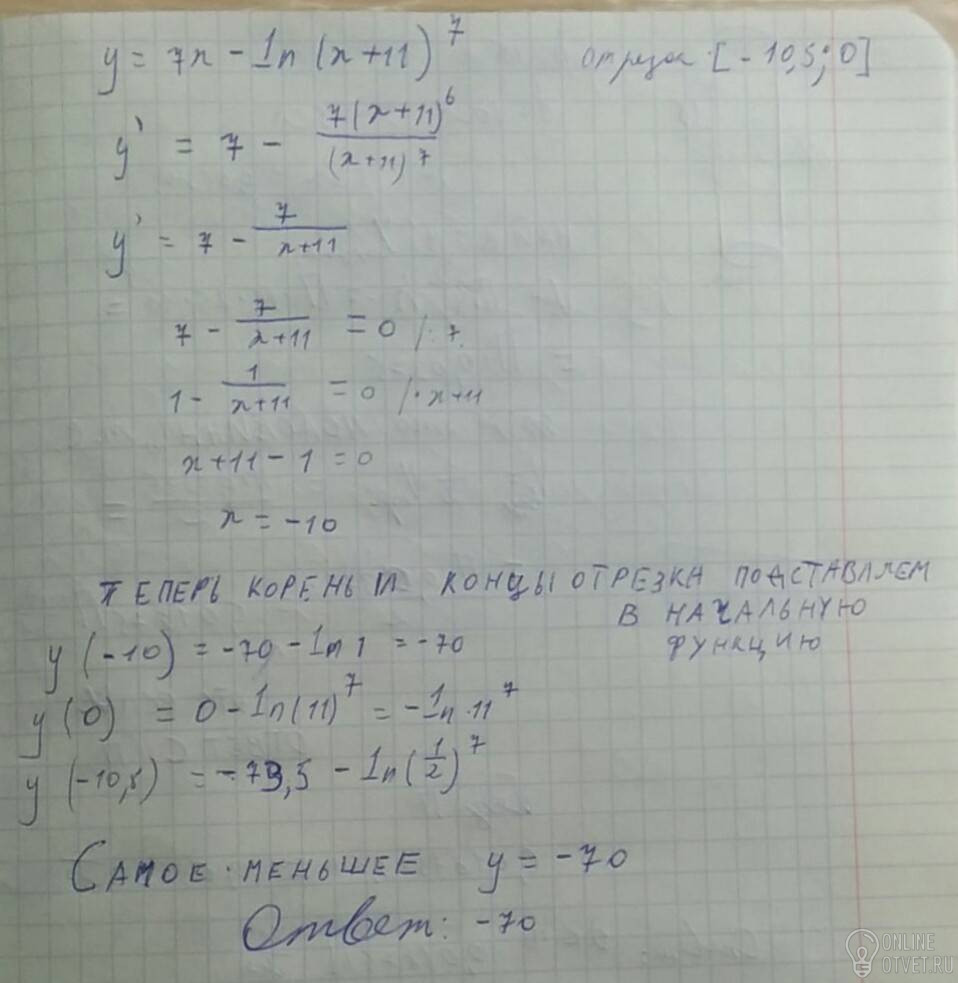 y = 7x - ln (x+11)^7 отрезок [-10,5; 0]
y' = 7 - 7(x+11)^6 / (x+11)^7
y' = 7 - 7 / x+11
7 - 7 / x+11 = 0 /: 7
1 - 1 / x+11 = 0 /· x+11
x+11 - 1 = 0
x = -10
ТЕПЕРЬ КОРЕНЬ И КОНЦЫ ОТРЕЗКА ПОДСТАВЛЯЕМ
В НАЧАЛЬНУЮ
ФУНКЦИЮ
y (-10) = -70 - ln 1 = -70
y (0) = 0 - ln(11)^7 = -ln 11^7
y (-10,5) = -73,5 - ln(1/2)^7
САМОЕ МЕНЬШЕЕ y = -70
Ответ: -70
ONLINE
OTVET.RU